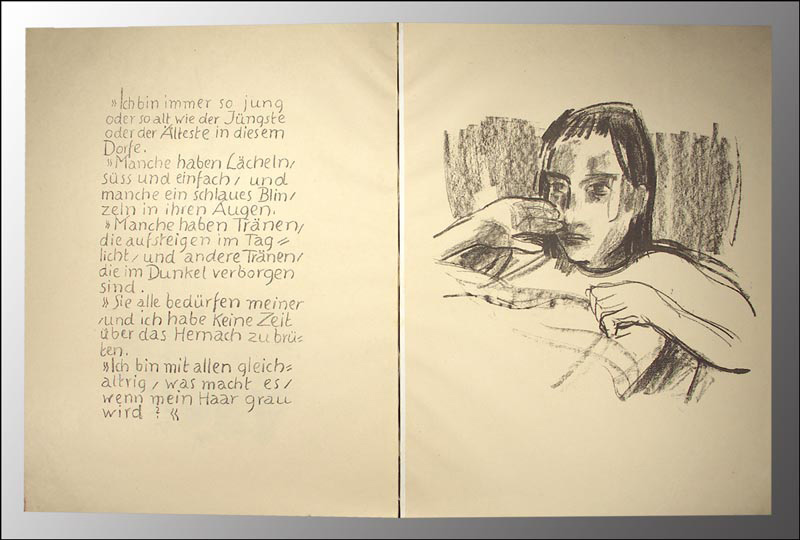 »Ich bin immer so jung
oder so alt, wie der Jüngste
oder der Älteste in diesem
Dorfe.
»Manche haben Lächeln/
süss und einfach/ und
manche ein schlaues Blin/
zeln in ihren Augen.
»Manche haben Tränen/
die aufsteigen im Tag=
licht/ und andere Tränen/
die im Dunkel verborgen
sind.
»Sie alle bedürfen meiner
/und ich habe Keine Zeit
über das Hernach zu brü=
ten.
»Ich bin mit allen gleich=
altrig/ was macht es/
wenn mein Haar grau
wird? «